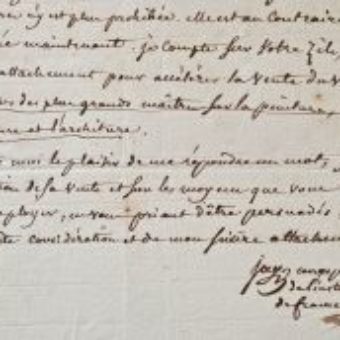 n'y est plus prohibée. elle est au contraire
maintenant. je compte sur votre zèle,
attachement pour accélérer la vente du
des plus grands maitre sur la peinture,
et l'architure.
moi le plaisir de me répondre un mot,
de sa vente et sur les moyen que vous
employer, en vous priant d'être persuadés
considération et de mon sincère attachem
de l'inst
de france